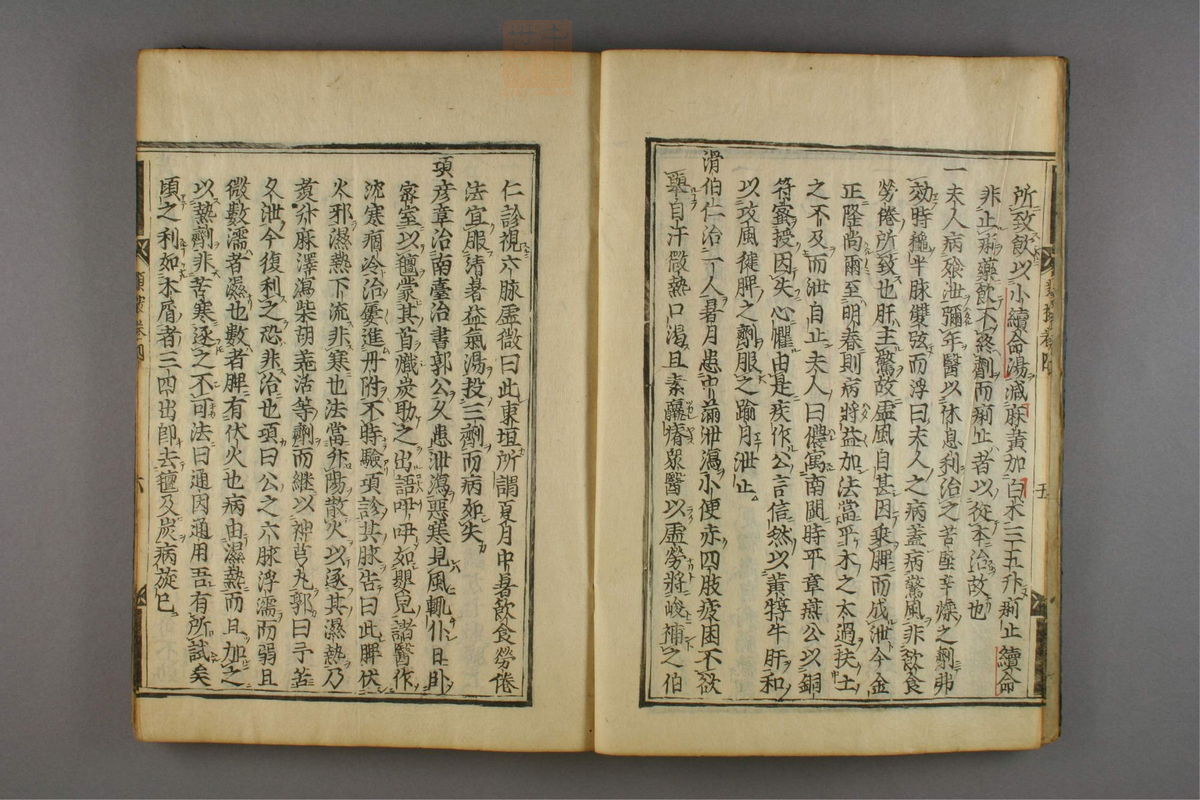 所致飲以小續命湯減麻黃加白朮三五升痢止續命
非止痢藥飲不終劑而痢止者以從本治故也
一夫人病飧泄彌年醫以休息利治之苦堅辛燥之劑弗
效時王脉雙弦而浮曰夫人之病蓋病驚風非飲食
勞倦所致也肝主驚故虛風自甚因乘脾而成泄今金
正隆尚爾至明春則病將益加法當平木之太過扶土
之不及而泄自止夫人曰儂寓南閩時平章燕公以銅
符密授因失心懼由是疾作公言信然以黃牸牛肝和
以攻風健脾之劑服之踰月泄止
滑伯仁治一人暑月患中滿泄瀉小便赤四肢疲困不欲
舉自汗微熱口渴且素羸瘠眾醫以虛勞將峻補之伯
類案卷四
五
仁診視六脉虛微曰此東垣所謂夏月中暑飲食勞倦
法宜服清暑益氣湯投三劑而病如失
項彥章治南臺治書郭公久患泄瀉惡寒見風輒仆日卧
密室以氊蒙其首熾炭助之出語呼呼如嬰兒諸醫作
沈寒痼冷治屢進丹附不時驗項診其脉告曰此脾伏
火邪濕熱下流非寒也法當升陽散火以逐其濕熱乃
煑升麻澤瀉柴胡羌活等劑而繼以神芎丸郭曰予苦
久泄今復利之恐非治也項曰公之六脉浮濡而弱且
微數濡者濕也數者脾有伏火也病由濕熱而且加之
以熱劑非苦寒逐之不可法曰通因通用吾有所試矣
頃之利如木屑者三四出即去氊及炭病旋已
類案卷四
六